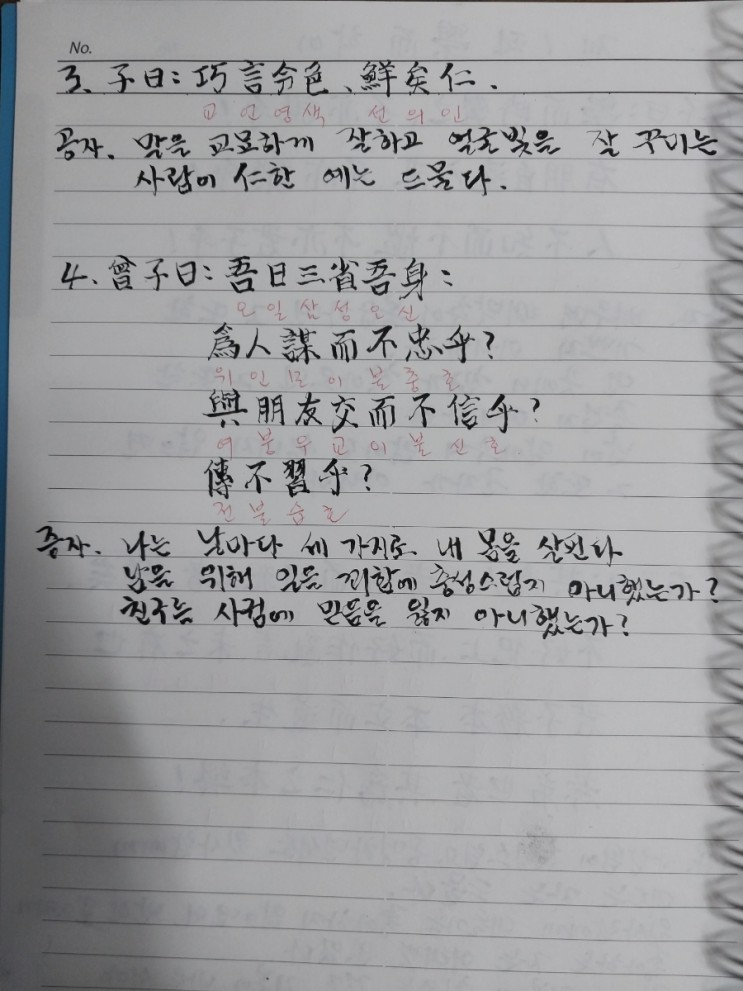 No.
3. 子曰: 巧言令色、鮮矣仁.
교언영색 선의인
공자. 말을 교묘하게 잘하고 얼굴빛을 잘 꾸미는
사람이 仁한 예는 드물다.
4. 曾子曰: 吾日三省吾身:
오일삼성오신
爲人謀而不忠乎?
위인모이불충호
與朋友交而不信乎?
여붕우교이불신호
傳不習乎?
전불습호
증자. 나는 날마다 세 가지로 내 몸을 살핀다
남을 위해 일을 꾀함에 충성스럽지 아니했는가?
친구를 사귐에 믿음을 잃지 아니했는가?